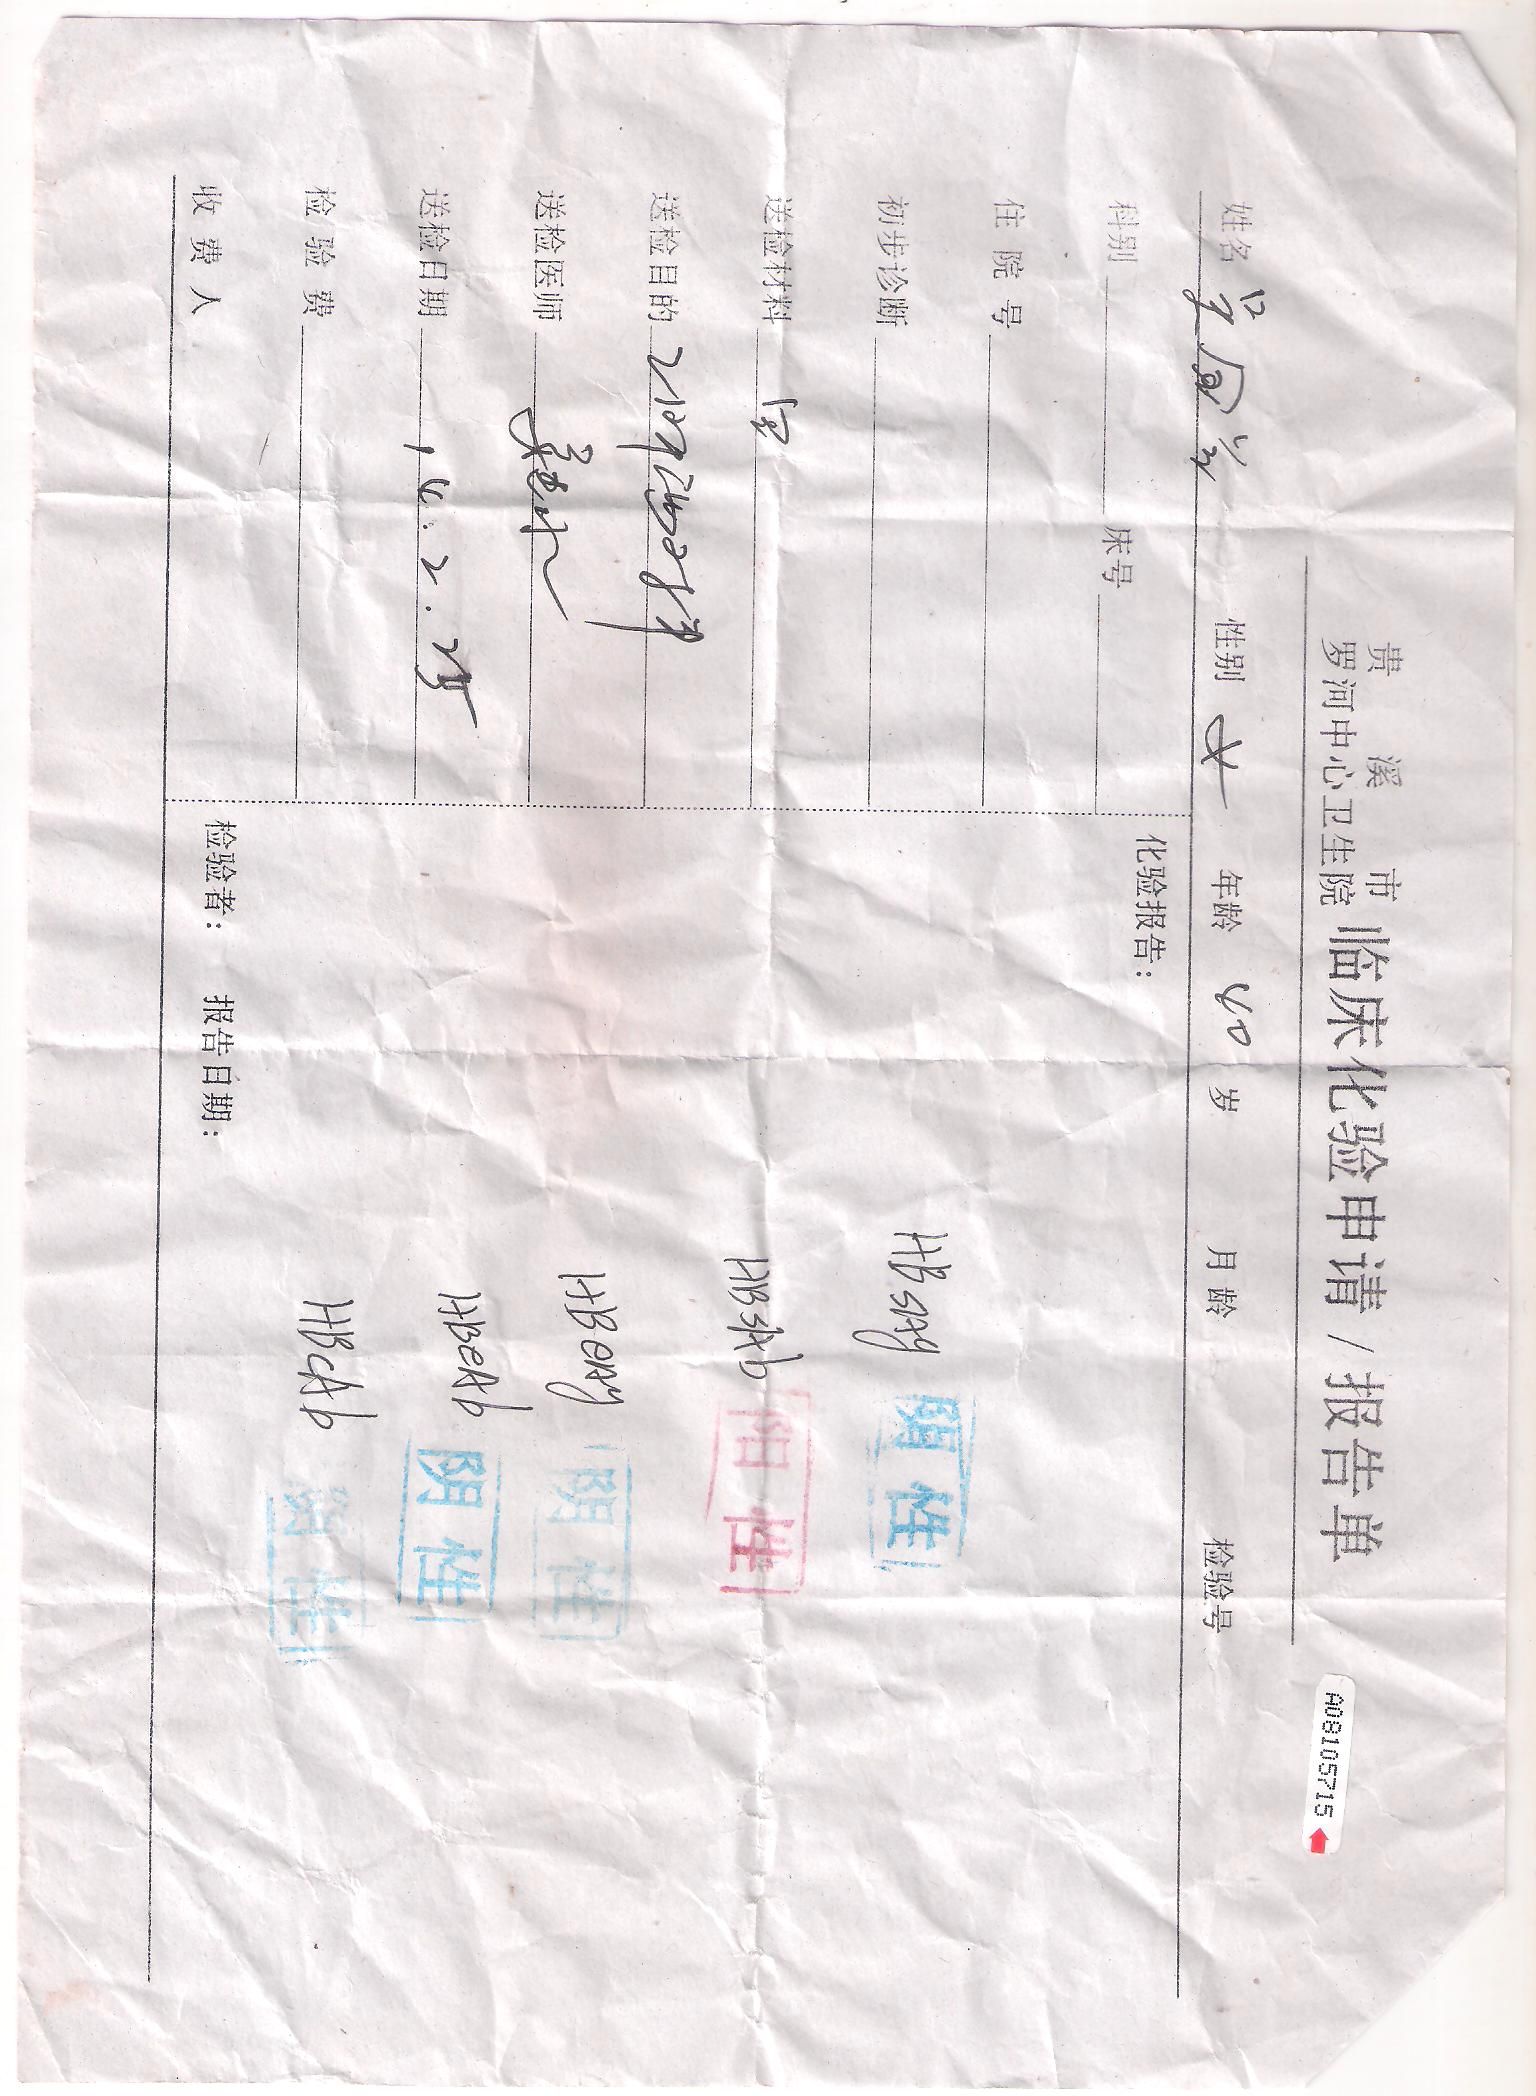 贵溪市
罗河中心卫生院 临床化验申请/报告单
A08105715
姓名 吴 性别 女 年龄 40 岁 月龄 检验号
科别 床号
住院号
初步诊断
送检材料 血
送检目的
送检医师
送检日期 14.2.25
检验费
收费人
化验报告：
HBsAg 阴性
HBsAb 阳性
HBeAg 阴性
HBeAb 阴性
HBcAb 阴性
检验者： 报告日期：